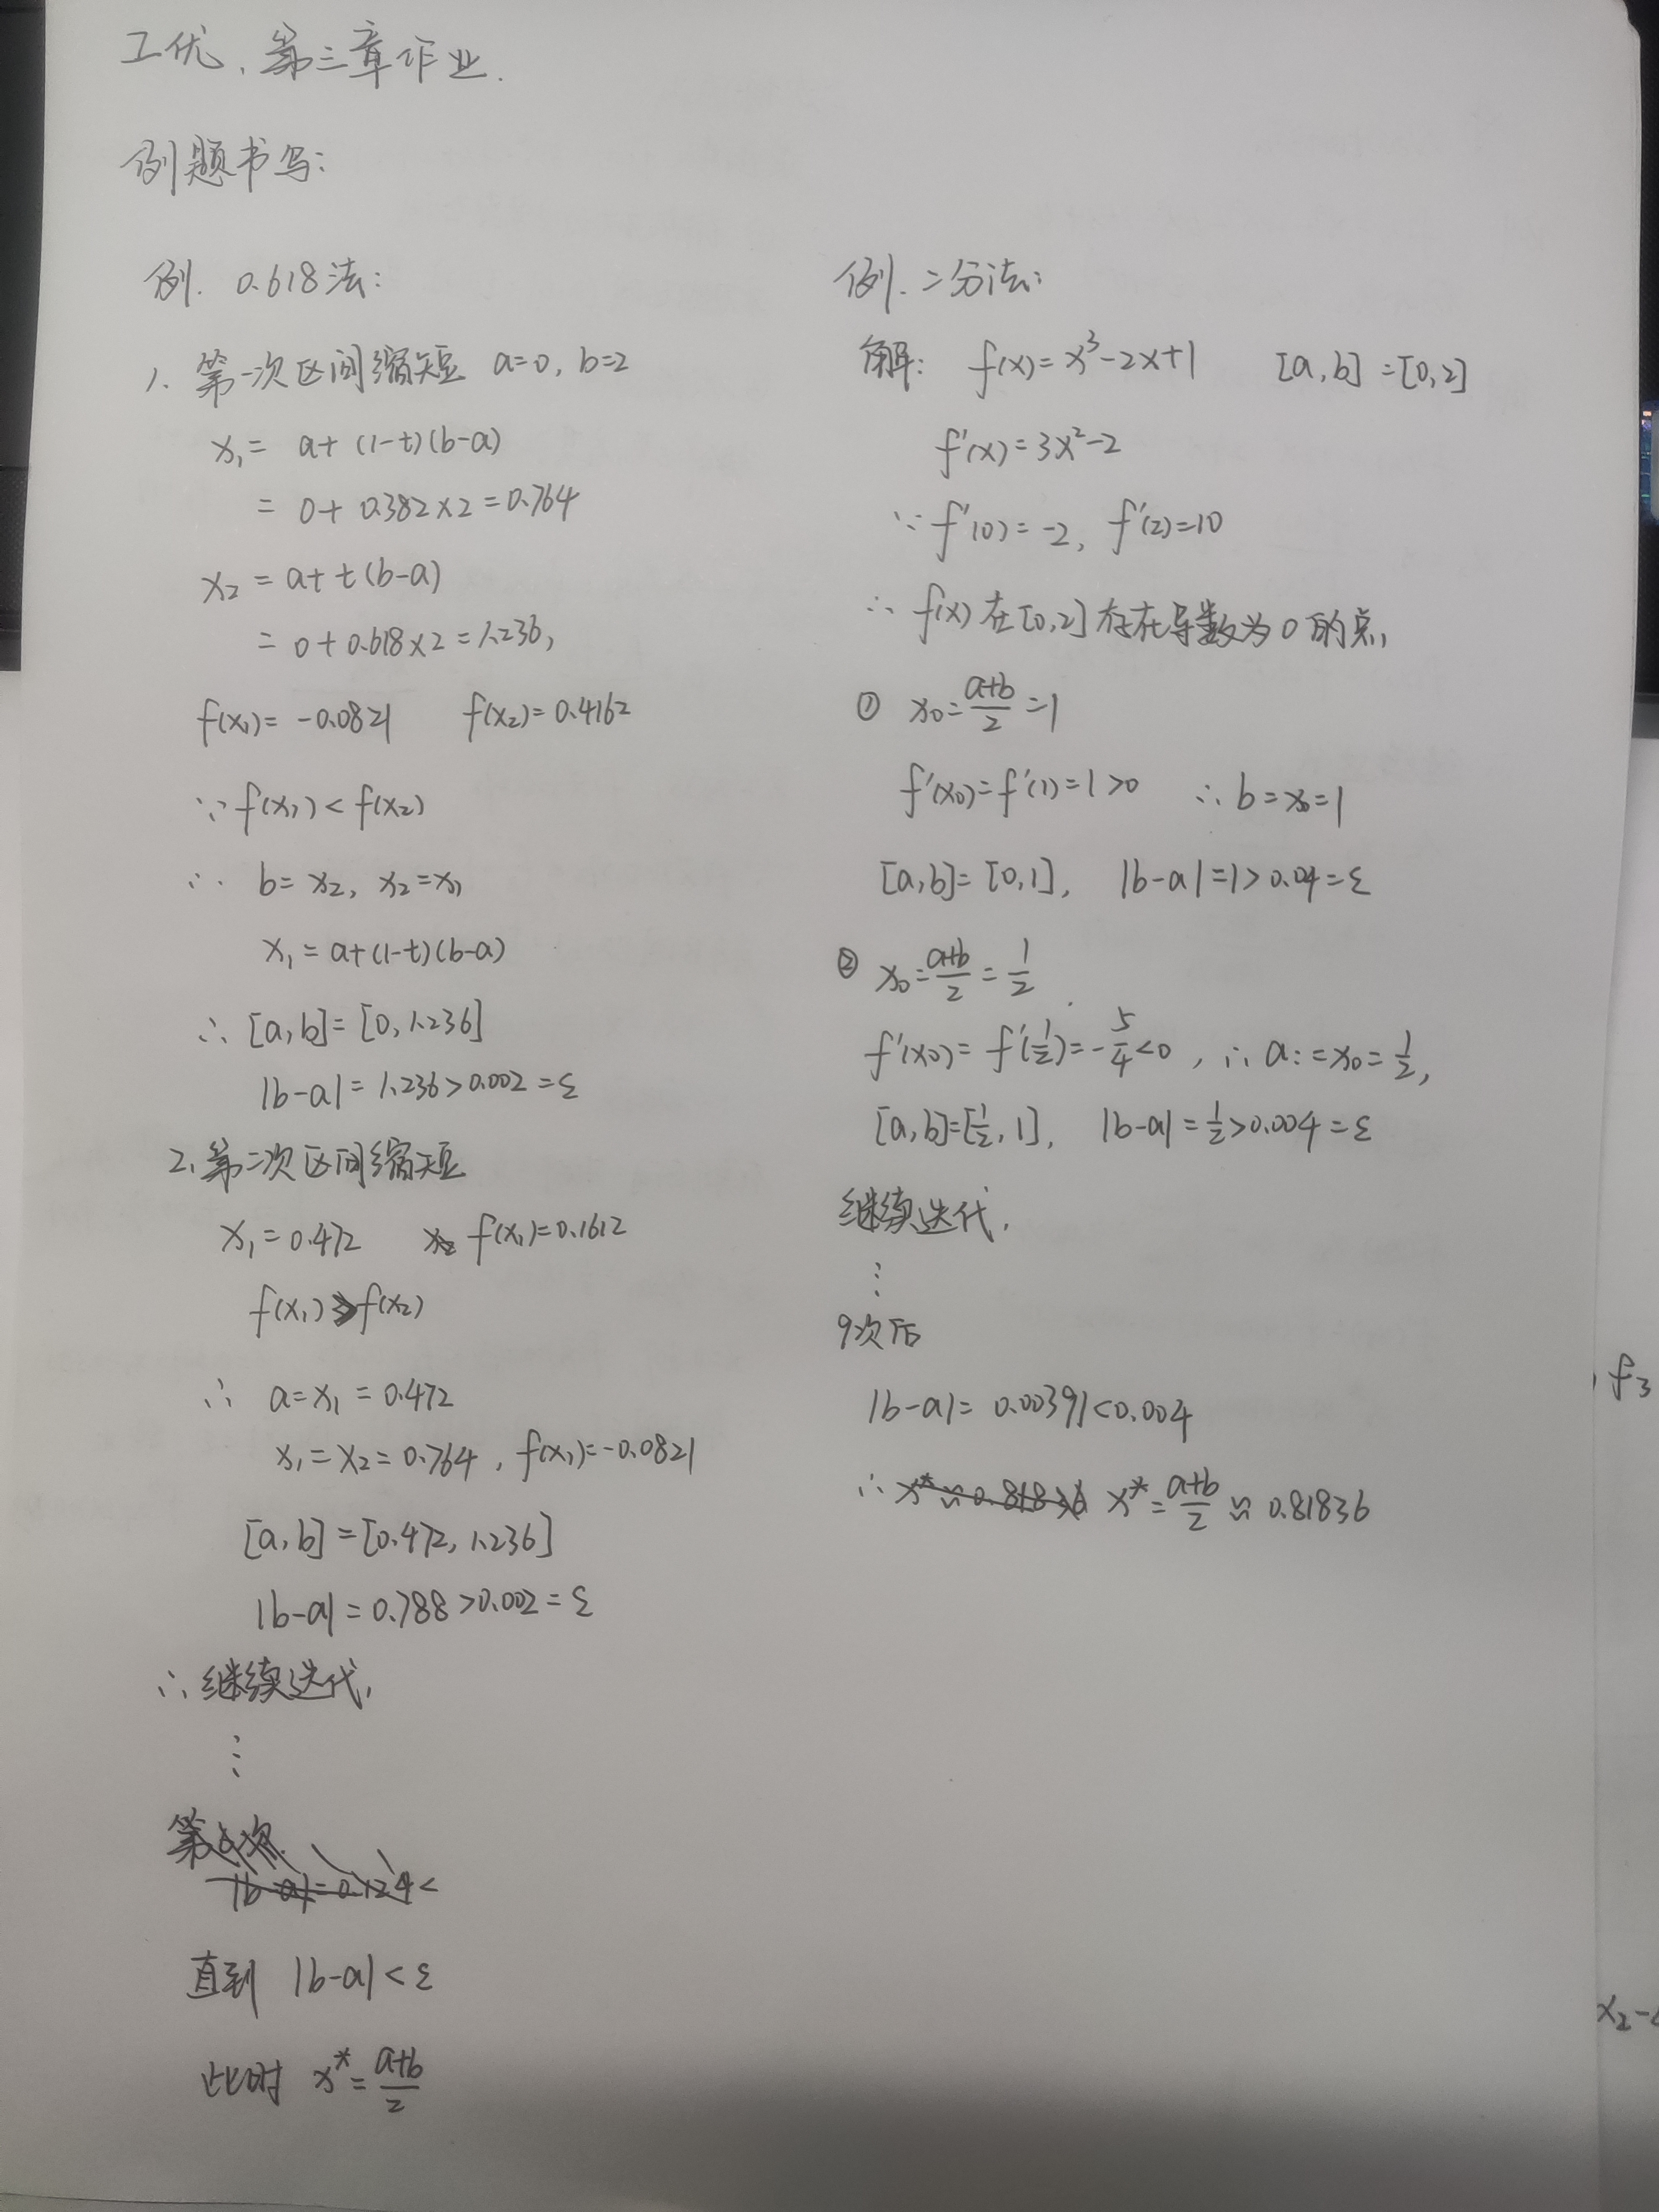 工优、第三章作业.
例题书写:
例. 0.618法:
1. 第一次区间缩短 a=0, b=2
x₁ = a+(1-t)(b-a)
= 0+0.382×2=0.764
x₂ = a+t(b-a)
= 0+0.618×2=1.236,
f(x₁)=-0.0821 f(x₂)=0.4162
∵ f(x₁)<f(x₂)
∴ b=x₂, x₂=x₁
x₁=a+(1-t)(b-a)
∴ [a,b]=[0,1.236]
|b-a|=1.236>0.002=ε
2. 第二次区间缩短
x₁=0.472 f(x₁)=0.1612
f(x₁)>f(x₂)
∴ a=x₁=0.472
x₁=x₂=0.764, f(x₁)=-0.0821
[a,b]=[0.472,1.236]
|b-a|=0.788>0.002=ε
∴继续迭代,
⋮
直到 |b-a|<ε
此时 x*=(a+b)/2
例. 二分法:
解: f(x)=x³-2x+1 [a,b]=[0,2]
f'(x)=3x²-2
∵ f'(0)=-2, f'(2)=10
∴ f(x)在[0,2]存在导数为0的点,
① x₀=(a+b)/2=1
f'(x₀)=f'(1)=1>0 ∴ b=x₀=1
[a,b]=[0,1], |b-a|=1>0.04=ε
② x₀=(a+b)/2=1/2
f'(x₀)=f'(1/2)=-5/4<0, ∴ a:=x₀=1/2,
[a,b]=[1/2,1], |b-a|=1/2>0.004=ε
继续迭代,
⋮
9次后
|b-a|=0.00391<0.004
∴ x*=(a+b)/2≈0.81836
, f₃
x₂-